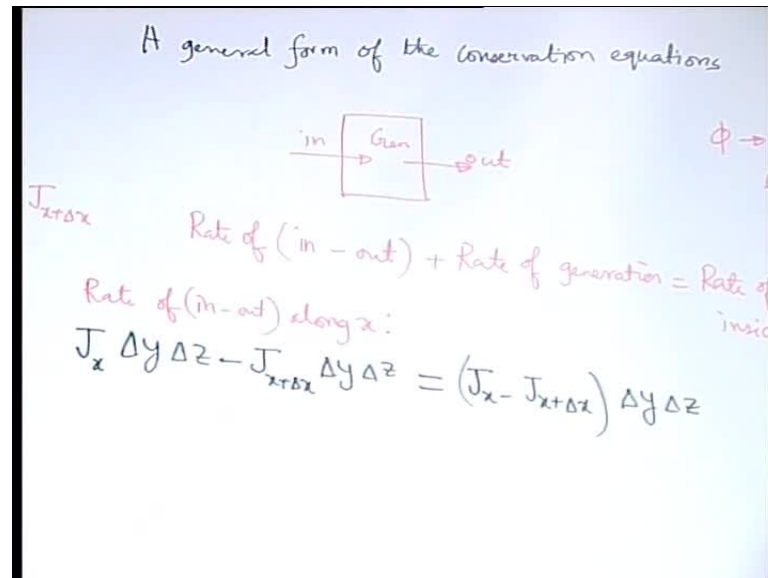 A general form of the conservation equations
in Gen out
ϕ →
J_{x+Δx}
Rate of (in - out) + Rate of generation = Rate of
insid
Rate of (in-out) along x:
J_x Δy Δz - J_{x+Δx} Δy Δz = (J_x - J_{x+Δx}) Δy Δz